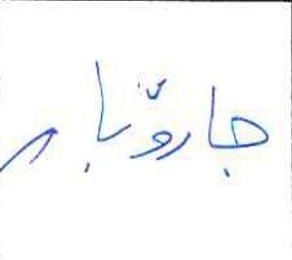 جاروّبار